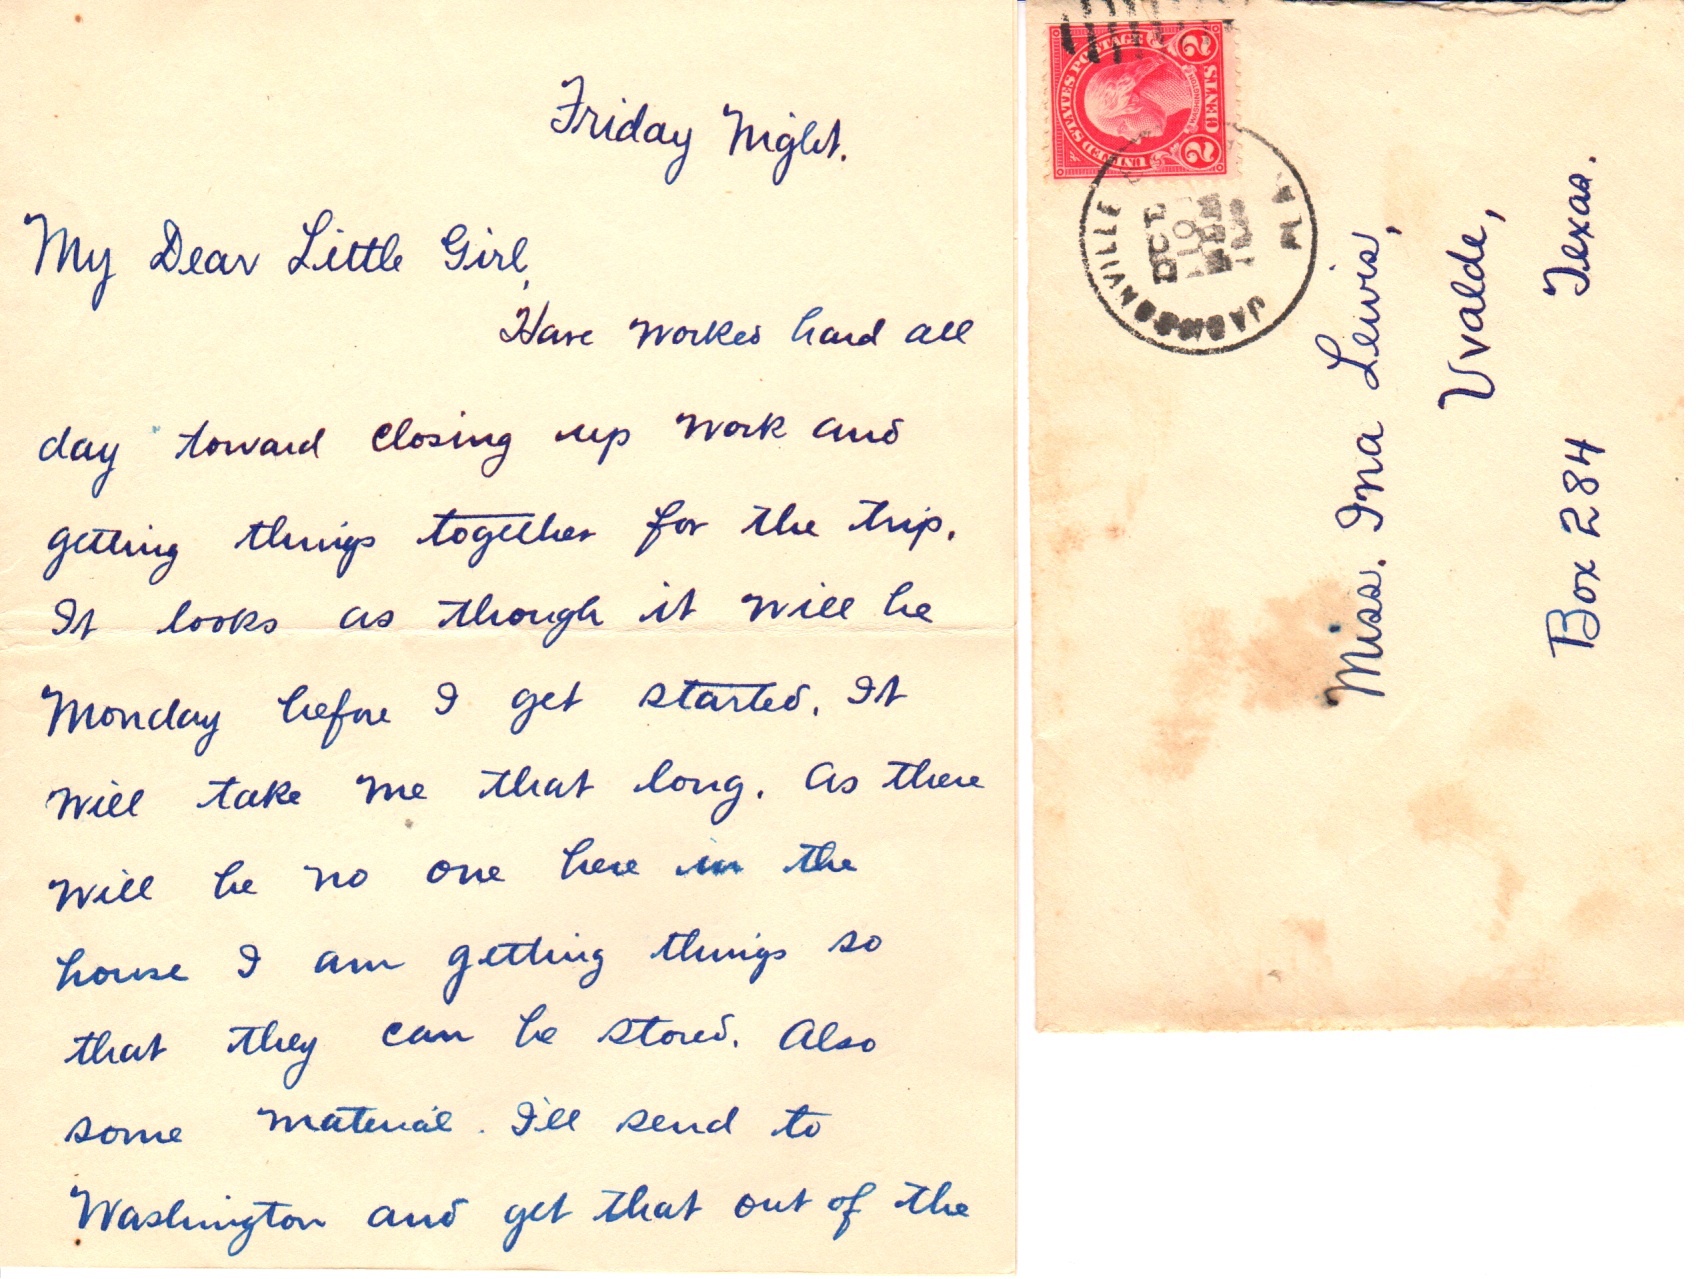 Friday Night.
My Dear Little Girl,
Have worked hard all
day toward closing up work and
getting things together for the trip.
It looks as though it will be
Monday before I get started. It
will take me that long. As there
will be no one here in the
house I am getting things so
that they can be stored. Also
some material. I'll send to
Washington and get that out of the
UNITED STATES POSTAGE
WASHINGTON
2 CENTS 2
JACKSONVILLE
DEC
10
ALA.
Miss. Ina Lewis,
Uvalde,
Box 284 Texas.